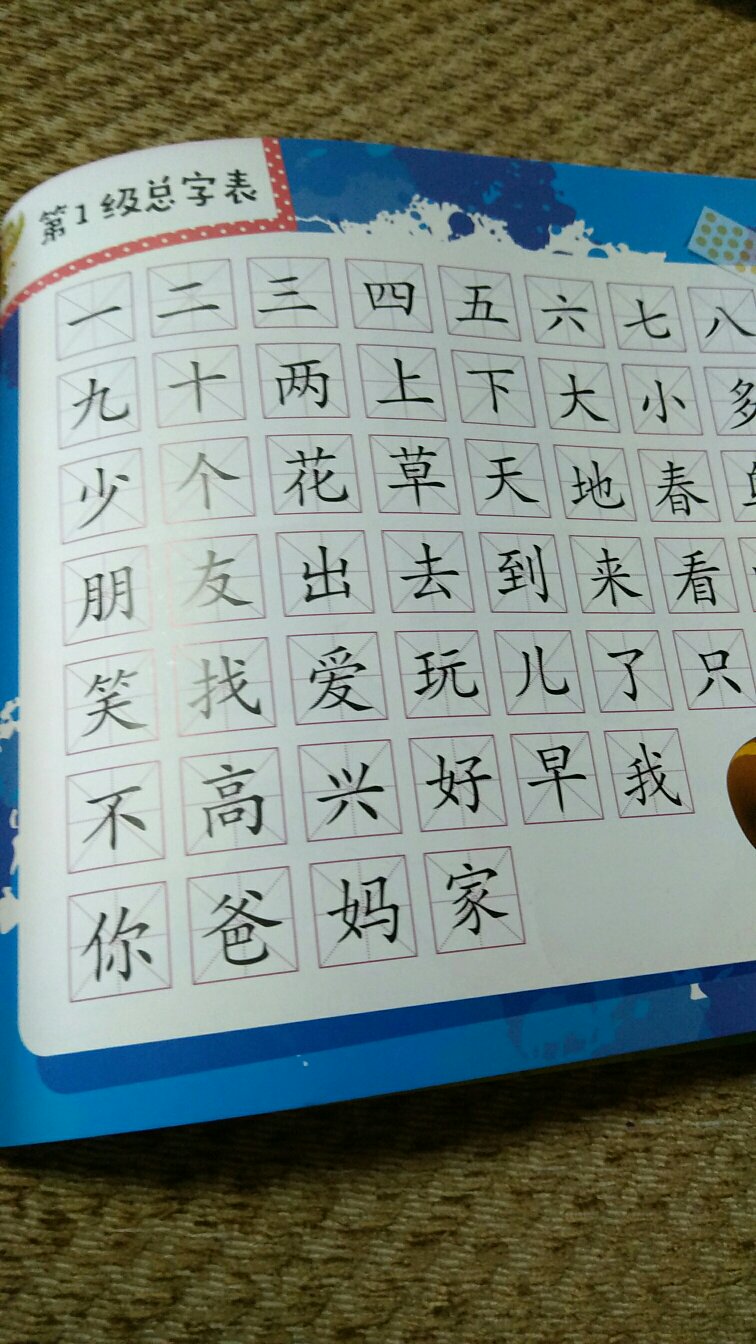 第1级总字表
一二三四五六七八
九十两上下大小多
少个花草天地春
朋友出去到来看
笑找爱玩儿了只
不高兴好早我
你爸妈家